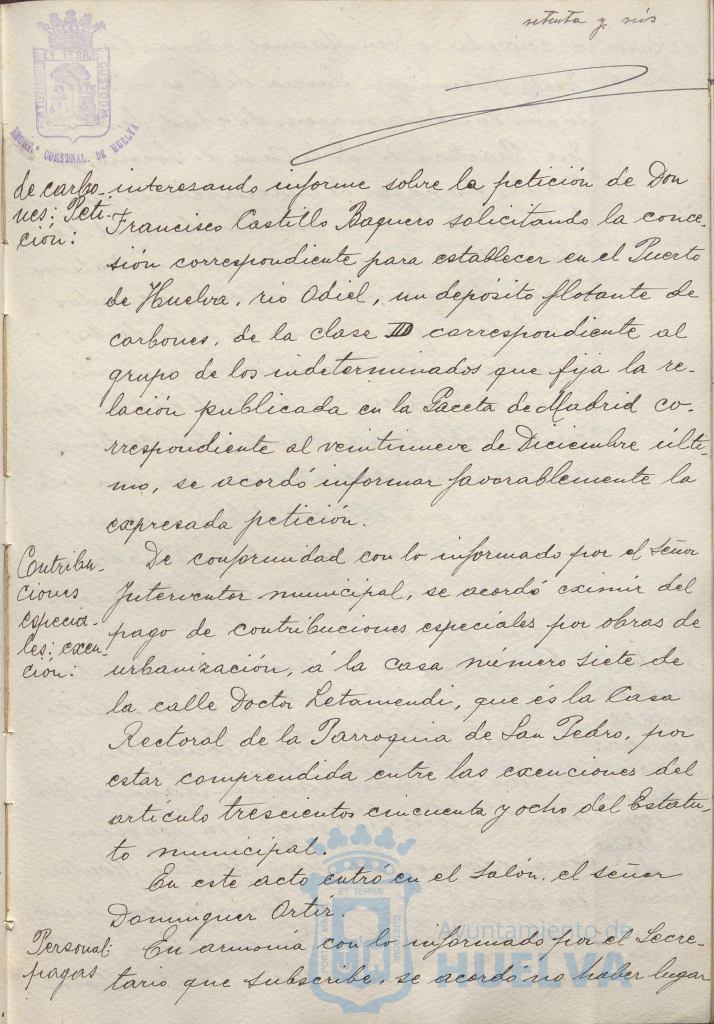 setenta y seis
ET TERRÆ CUSTODIA
CONSTNAL. DE HUELVA
de carbo-
nes: Peti-
ción:
interesando informe sobre la petición de Don
Francisco Castillo Baquero solicitando la conce-
sión correspondiente para establecer en el Puerto
de Huelva, rio Odiel, un depósito flotante de
carbones, de la clase III correspondiente al
grupo de los indeterminados que fija la re-
lación publicada en la Gaceta de Madrid co-
rrespondiente al veintinueve de Diciembre últi-
mo, se acordó informar favorablemente la
expresada petición.
Contribu-
ciones
especia-
les: exen-
ción:
De conformidad con lo informado por el señor
Interventor municipal, se acordó eximir del
pago de contribuciones especiales por obras de
urbanización, á la casa número siete de
la calle Doctor Letamendi, que és la Casa
Rectoral de la Parroquia de San Pedro, por
estar comprendida entre las exenciones del
artículo trescientos cincuenta y ocho del Estatu-
to municipal.
En este acto entró en el salón, el señor
Dominguez Ortiz.
Personal:
pagas
En armonía con lo informado por el Secre-
tario que subscribe, se acordó no haber lugar
ET TERRÆ
Ayuntamiento de
HUELVA